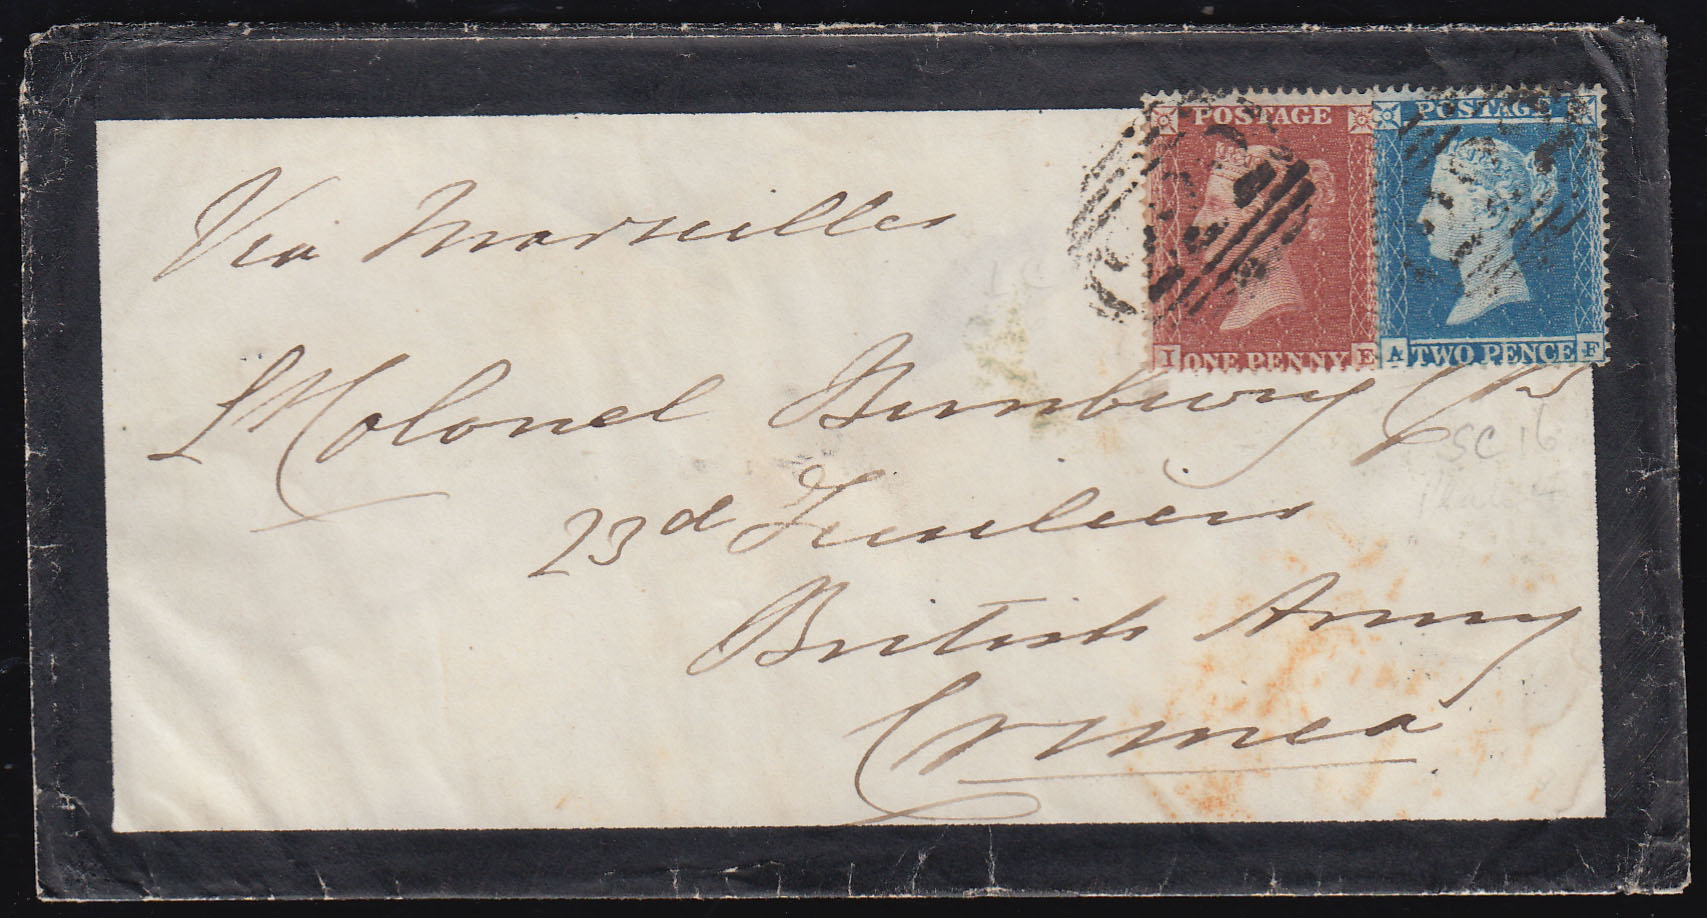 POSTAGE POSTAGE
I ONE PENNY E A TWO PENCE F
Via Marseilles
Lt Colonel Bunbury CB
23d Fusiliers
SC 16
Plate 4
British Army
Crimea